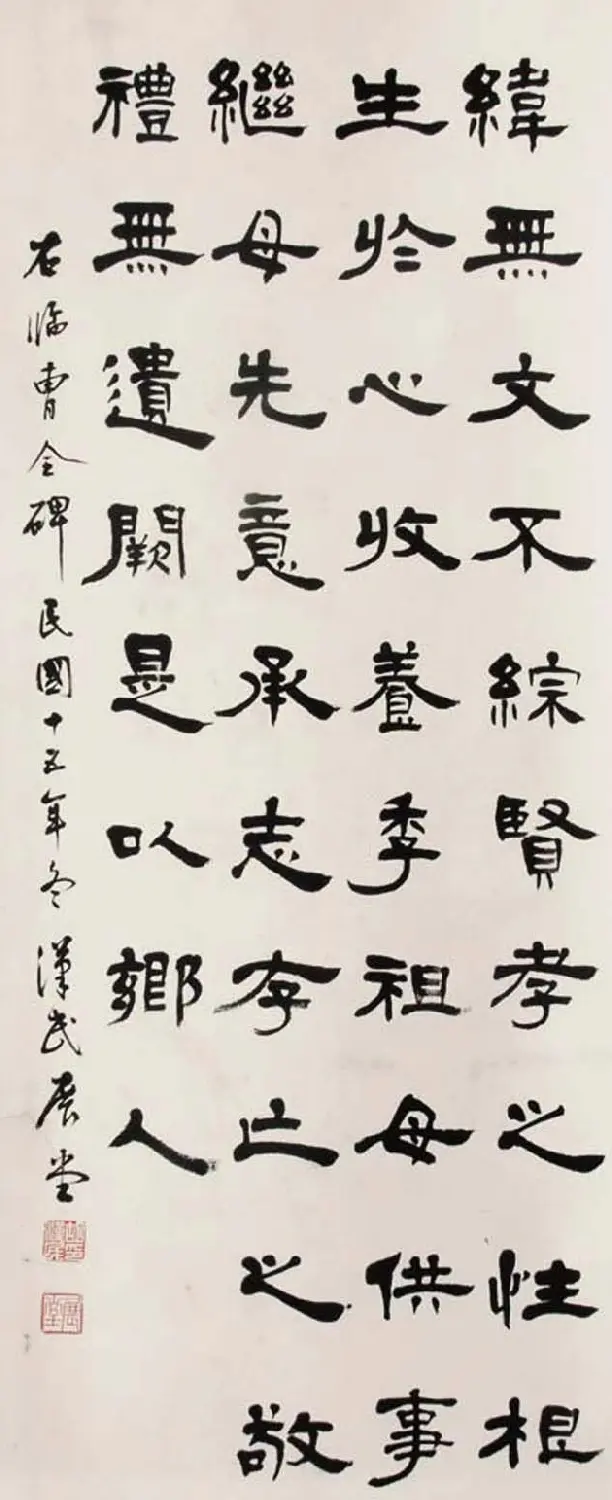 緯無文不綜賢孝之性根
生於心收養季祖母供事
繼母先意承志存亡之敬
禮無遺闕是以鄉人
右臨曹全碑民國十五年冬漢民展堂